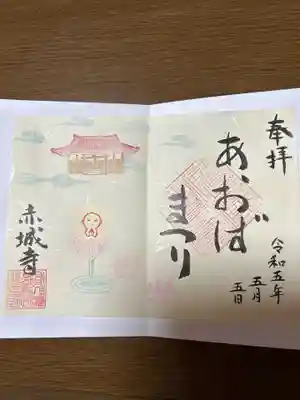 奉拝
あおば
まつり
令和五年
五月
五日
赤城寺